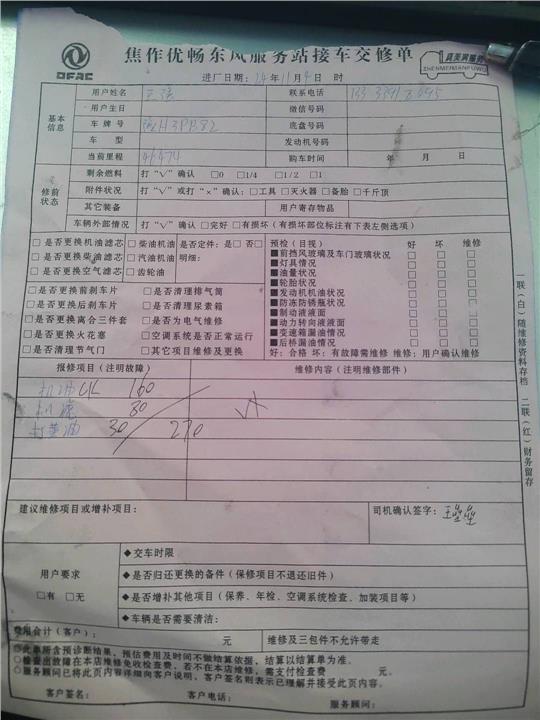 焦作优畅东风服务站接车交修单
DFAC
真美网服务
ZHENMEIWANGFUWU
进厂日期：24年11月4日 时
基本信息
用户姓名 联系电话
用户生日 微信号码
车牌号 底盘号码
车型 发动机号码
当前里程 46474 购车时间 年 月 日
修前状态
剩余燃料 打“√”确认 □0 □1/4 □1/2 □1
附件状况 打“√”或打“×”确认：□工具 □灭火器 □备胎 □千斤顶
其它装备 用户寄存物品
车辆外部情况 打“√”确认 □完好 □有损坏（有损坏部位标注有下表左侧选项）
□是否更换机油滤芯 □柴油机油 是否定件：是□ 否□
□是否更换柴油滤芯 □汽油机油 明细：
□是否更换空气滤芯 □齿轮油
□是否更换前刹车片 □是否清理排气筒
□是否更换后刹车片 □是否清理尿素箱
□是否更换离合三件套 □是否为电气维修
□是否更换火花塞 □空调系统是否正常运行
□是否清理节气门 □其它项目维修及更换
预检（目视） 好 坏 维修
■前挡风玻璃及车门玻璃状况 □ □ □
■灯具情况 □ □ □
■油量状况 □ □ □
■轮胎状况 □ □ □
■发动机机油状况 □ □ □
■防冻防锈瓶状况 □ □ □
■制动液液面 □ □ □
■动力转向液液面 □ □ □
■变速箱漏油情况 □ □ □
■后桥漏油情况 □ □ □
好：合格 坏：有故障需维修 维修：用户确认维修
报修项目（注明故障） 维修内容（注明维修部件）
机油 160
机滤 80
打黄油 30 270
建议维修项目或增补项目： 司机确认签字：
用户要求
□有 □无
◆交车时限
◆是否归还更换的备件（保修项目不退还旧件）
◆是否增补其他项目（保养、年检、空调系统检查、加装项目等）
◆车辆是否需要清洁：
费用合计（客户）： 元 维修及三包件不允许带走
○此单所含预诊断结果，预估费用及时间不做结算依据，结算以结算单为准。
○检查出故障在本店维修免收检查费，若不在本店维修，需支付检查费 元。
○服务顾问已将此页内容详细向客户说明，客户签名则表示已理解并接受此页内容。
客户签名： 客户电话： 服务顾问：
一联（白）随维修资料存档 二联（红）财务留存